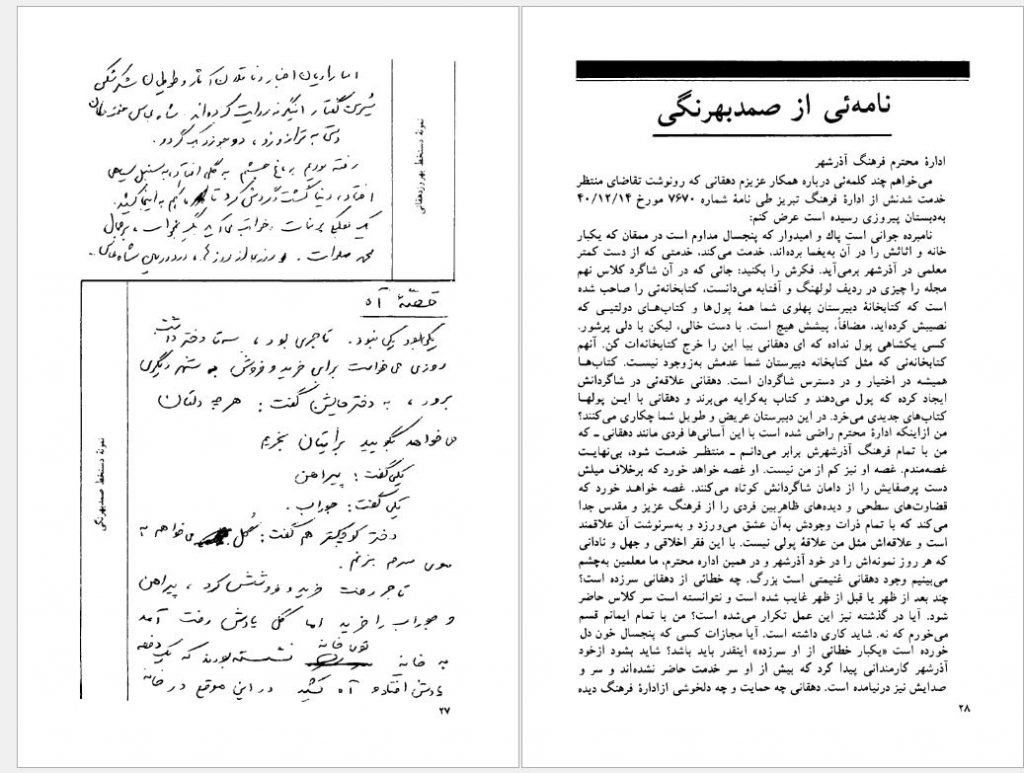 نامه‌ئی از صمدبهرنگی
ادارهٔ محترم فرهنگ آذرشهر
می‌خواهم چند کلمه‌ئی درباره همکار عزیزم دهقانی که رونوشت تقاضای منتظر
خدمت شدنش از ادارهٔ فرهنگ تبریز طی نامهٔ شماره ۷۶۷۰ مورخ ۴۰/۱۲/۱۴
به‌دبستان پیروزی رسیده است عرض کنم:
نامبرده جوانی است پاك و امیدوار که پنجسال مداوم است در ممقان که یکبار
خانه و اثاثش را در آن به‌یغما برده‌اند، خدمت می‌کند، خدمتی که از دست کمتر
معلمی در آذرشهر برمی‌آید. فکرش را بکنید: جائی که در آن شاگرد کلاس نهم
مجله را چیزی در ردیف لولهنگ و آفتابه می‌دانست، کتابخانه‌ئی را صاحب شده
است که کتابخانهٔ دبیرستان پهلوی شما همهٔ پول‌ها و کتاب‌های دولتیی که
نصیبش کرده‌اید، مضافاً، پیشش هیچ است. با دست خالی، لیکن با دلی پرشور.
کسی یکشاهی پول نداده که ای دهقانی بیا این را خرج کتابخانه‌ات کن. آنهم
کتابخانه‌ئی که مثل کتابخانه دبیرستان شما عدمش به‌زوجود نیست. کتاب‌ها
همیشه در اختیار و در دسترس شاگردان است. دهقانی علاقه‌ئی در شاگردانش
ایجاد کرده که پول می‌دهند و کتاب به‌کرایه می‌برند و دهقانی با این پولها
کتاب‌های جدیدی می‌خرد. در این دبیرستان عریض و طویل شما چکاری می‌کنند؟
من ازاینکه ادارهٔ محترم راضی شده است با این آسانی‌ها فردی مانند دهقانی ـ که
من با تمام فرهنگ آذرشهرش برابر می‌دانم ـ منتظر خدمت شود، بی‌نهایت
غصه‌مندم. غصه او نیز کم از من نیست. او غصه خواهد خورد که برخلاف میلش
دست پرصفایش را از دامان شاگردانش کوتاه می‌کنند. غصه خواهد خورد که
قضاوت‌های سطحی و دیده‌های ظاهربین فردی را از فرهنگ عزیز و مقدس جدا
می‌کند که با تمام ذرات وجودش به‌آن عشق می‌ورزد و به‌سرنوشت آن علاقمند
است و علاقه‌اش مثل من علاقهٔ پولی نیست. با این فقر اخلاقی و جهل و نادانی
که هر روز نمونه‌اش را در خود آذرشهر و در همین اداره محترم، ما معلمین به‌چشم
می‌بینیم وجود دهقانی غنیمتی است بزرگ. چه خطائی از دهقانی سرزده است؟
چند بعد از ظهر یا قبل از ظهر غایب شده است و نتوانسته است سر کلاس حاضر
شود. آیا در گذشته نیز این عمل تکرار می‌شده است؟ من با تمام ایمانم قسم
می‌خورم که نه. شاید کاری داشته است. آیا مجازات کسی که پنجسال خون دل
خورده است «یکبار خطائی از او سرزده» اینقدر باید باشد؟ شاید بشود ازخود
آذرشهر کارمندانی پیدا کرد که بیش از او سر خدمت حاضر نشده‌اند و سر و
صدایش نیز درنیامده است. دهقانی چه حمایت و چه دلخوشی ازادارهٔ فرهنگ دیده
۲۸
اما راویان اخبار و ناقلان آثار و طوطیان شکرشکن
شیرین گفتار اینگونه روایت کرده‌اند
دستی به ترازو زد، دو جوز
رفته بودیم به باغ
نمونهٔ دستخط بهروزدهقانی
قصّهٔ آه
یکی بود یکی نبود. تاجری بود، سه تا دختر داشت
روزی می‌خواست برای خرید و فروش به شهر دیگری
برود، به دخترهایش گفت: هر چه دلتان
می‌خواهد بگویید برایتان بخرم
یکی گفت: پیراهن
یکی گفت: جوراب.
دختر کوچکتر هم گفت: گل می‌خواهم به
موی سرم بزنم.
تاجر رفت خرید و فروشش کرد، پیراهن
و جوراب را خرید اما گل یادش رفت آمد
به خانه توی خانه نشسته بودند که یکدفعه
یادش افتاد و آه کشید در این موقع در خانه
نمونهٔ دستخط صمدبهرنگی
۲۷